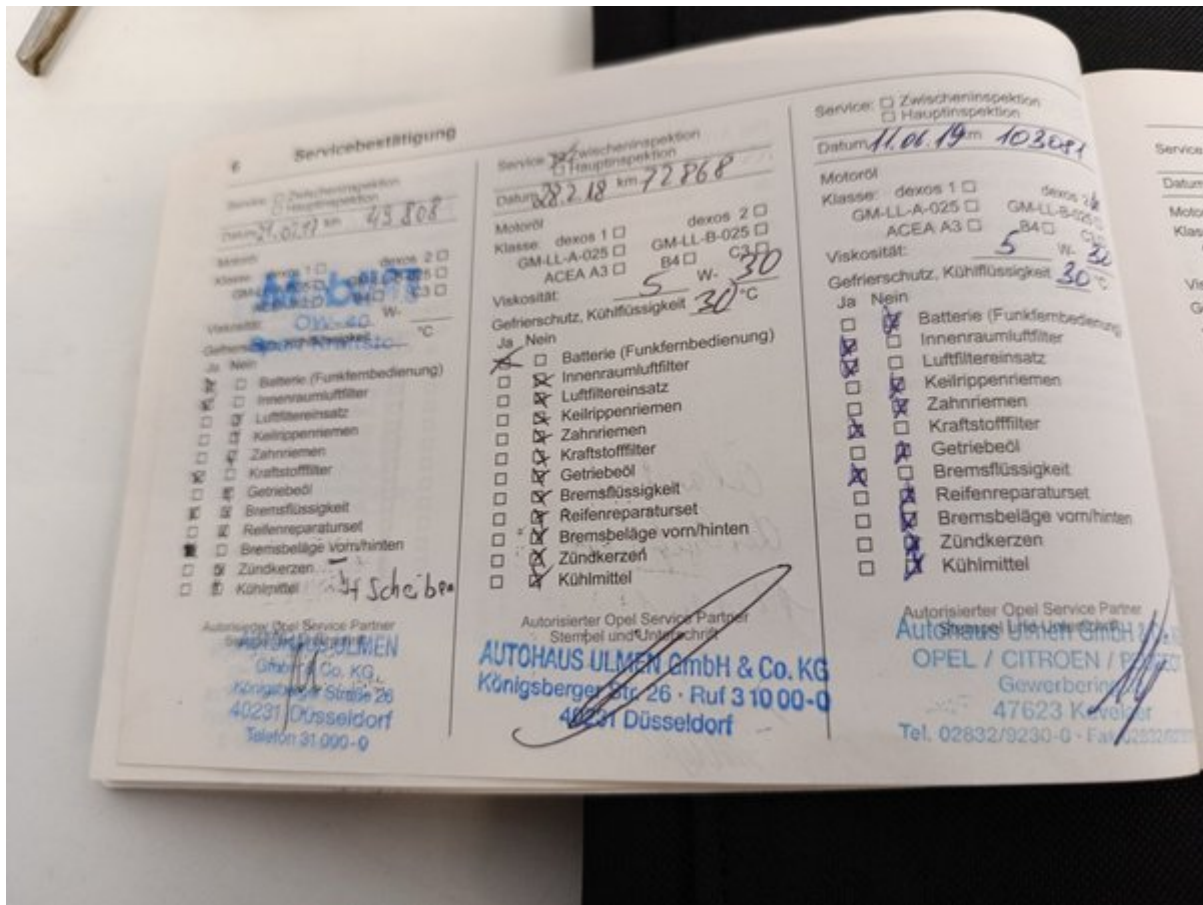 6 Servicebestätigung
Service: □ Zwischeninspektion
□ Hauptinspektion
Datum km 43 808
Motoröl
Klasse: dexos 1 □ dexos 2 □
C3 □
Viskosität: W-
OW-40
°C
Ja Nein
Batterie (Funkfernbedienung)
Innenraumluftfilter
Luftfiltereinsatz
Keilrippenriemen
Zahnriemen
Kraftstofffilter
Getriebeöl
Bremsflüssigkeit
Reifenreparaturset
Bremsbeläge vorn/hinten
Zündkerzen
Kühlmittel
Scheiben
Autorisierter Opel Service Partner
AUTOHAUS ULMEN
GmbH & Co. KG
Königsberger Straße 26
40231 Düsseldorf
Telefon 31 000-0
Service: Zwischeninspektion
□ Hauptinspektion
Datum 28.2.18 km 72868
Motoröl
Klasse: dexos 1 □ dexos 2 □
GM-LL-A-025 □ GM-LL-B-025 □
ACEA A3 □ B4 □ C3 □
Viskosität: 5 W- 30
Gefrierschutz, Kühlflüssigkeit 30 °C
Ja Nein
Batterie (Funkfernbedienung)
Innenraumluftfilter
Luftfiltereinsatz
Keilrippenriemen
Zahnriemen
Kraftstofffilter
Getriebeöl
Bremsflüssigkeit
Reifenreparaturset
Bremsbeläge vorn/hinten
Zündkerzen
Kühlmittel
Autorisierter Opel Service Partner
Stempel und Unterschrift
AUTOHAUS ULMEN GmbH & Co. KG
Königsberger Str. 26 · Ruf 3 10 00-0
40231 Düsseldorf
Service: □ Zwischeninspektion
□ Hauptinspektion
Datum 11.06.19 km 103081
Motoröl
Klasse: dexos 1 □ dexos 2
GM-LL-A-025 □ GM-LL-B-025
ACEA A3 □ B4 □ C3
Viskosität: 5 W- 30
Gefrierschutz, Kühlflüssigkeit 30 °C
Ja Nein
Batterie (Funkfernbedienung)
Innenraumluftfilter
Luftfiltereinsatz
Keilrippenriemen
Zahnriemen
Kraftstofffilter
Getriebeöl
Bremsflüssigkeit
Reifenreparaturset
Bremsbeläge vorn/hinten
Zündkerzen
Kühlmittel
Autorisierter Opel Service Partner
Stempel und Unterschrift
Autohaus Ulmen GmbH &
OPEL / CITROEN /
47623 Kevelaer
Tel. 02832/9230-0 · Fax
Service